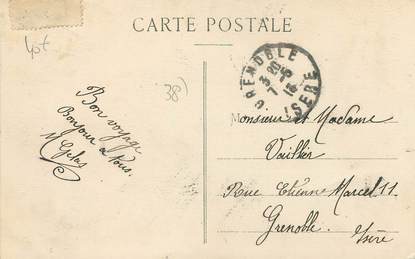 CARTE POSTALE
lot
38)
GRENOBLE
3 20
7 -5
13
ISERE
Bon voyage
Bonjour à vous.
M Gelas
Monsieur et Madame
Vaillier
Rue Etienne Marcel 11
Grenoble.
Isère